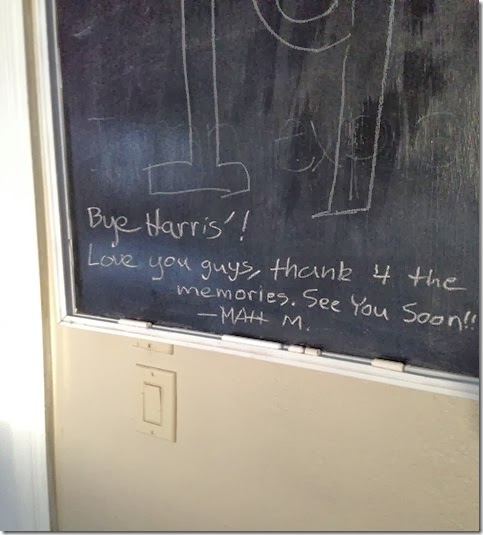 19
Bye Harris'!
Love you guys, thank 4 the
memories. See You Soon!!
—Matt M.